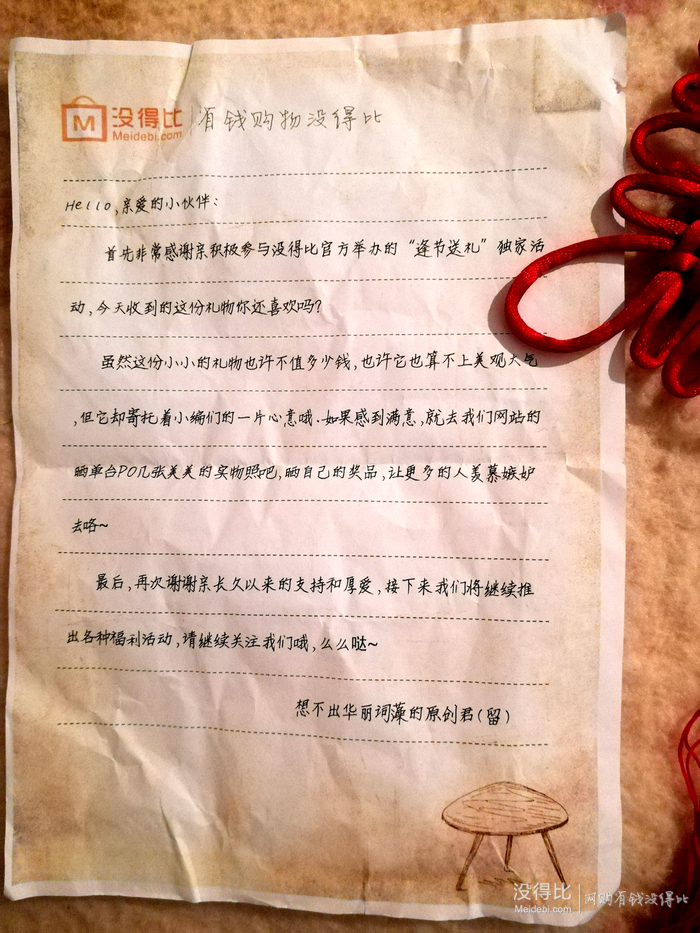 没得比
Meidebi.com
有钱购物没得比
Hello,亲爱的小伙伴:
首先非常感谢亲积极参与没得比官方举办的“逢节送礼”独家活
动,今天收到的这份礼物你还喜欢吗?
虽然这份小小的礼物也许不值多少钱,也许它也算不上美观大气
,但它却寄托着小编们的一片心意哦.如果感到满意,就去我们网站的
晒单台PO几张美美的实物照吧,晒自己的奖品,让更多的人羡慕嫉妒
去咯~
最后,再次谢谢亲长久以来的支持和厚爱,接下来我们将继续推
出各种福利活动,请继续关注我们哦,么么哒~
想不出华丽词藻的原创君(留)
没得比
Meidebi.com
网购有钱没得比